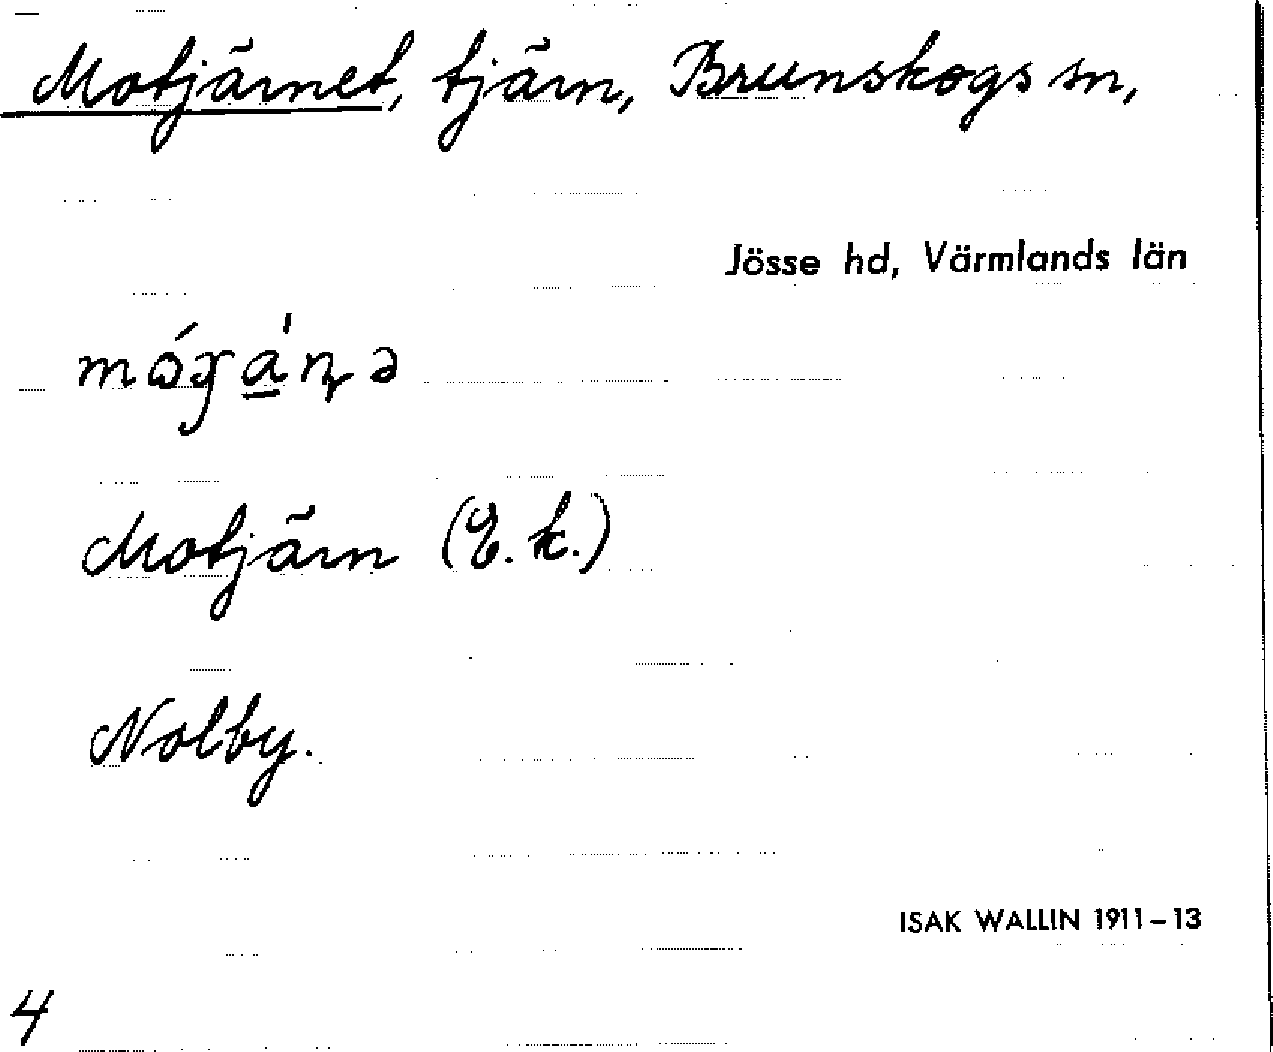 Motjärnet, tjärn, Brunskogs sn,
Jösse hd, Värmlands län
Motjärn (E.k.)
Nolby.
ISAK WALLIN 1911–13
4